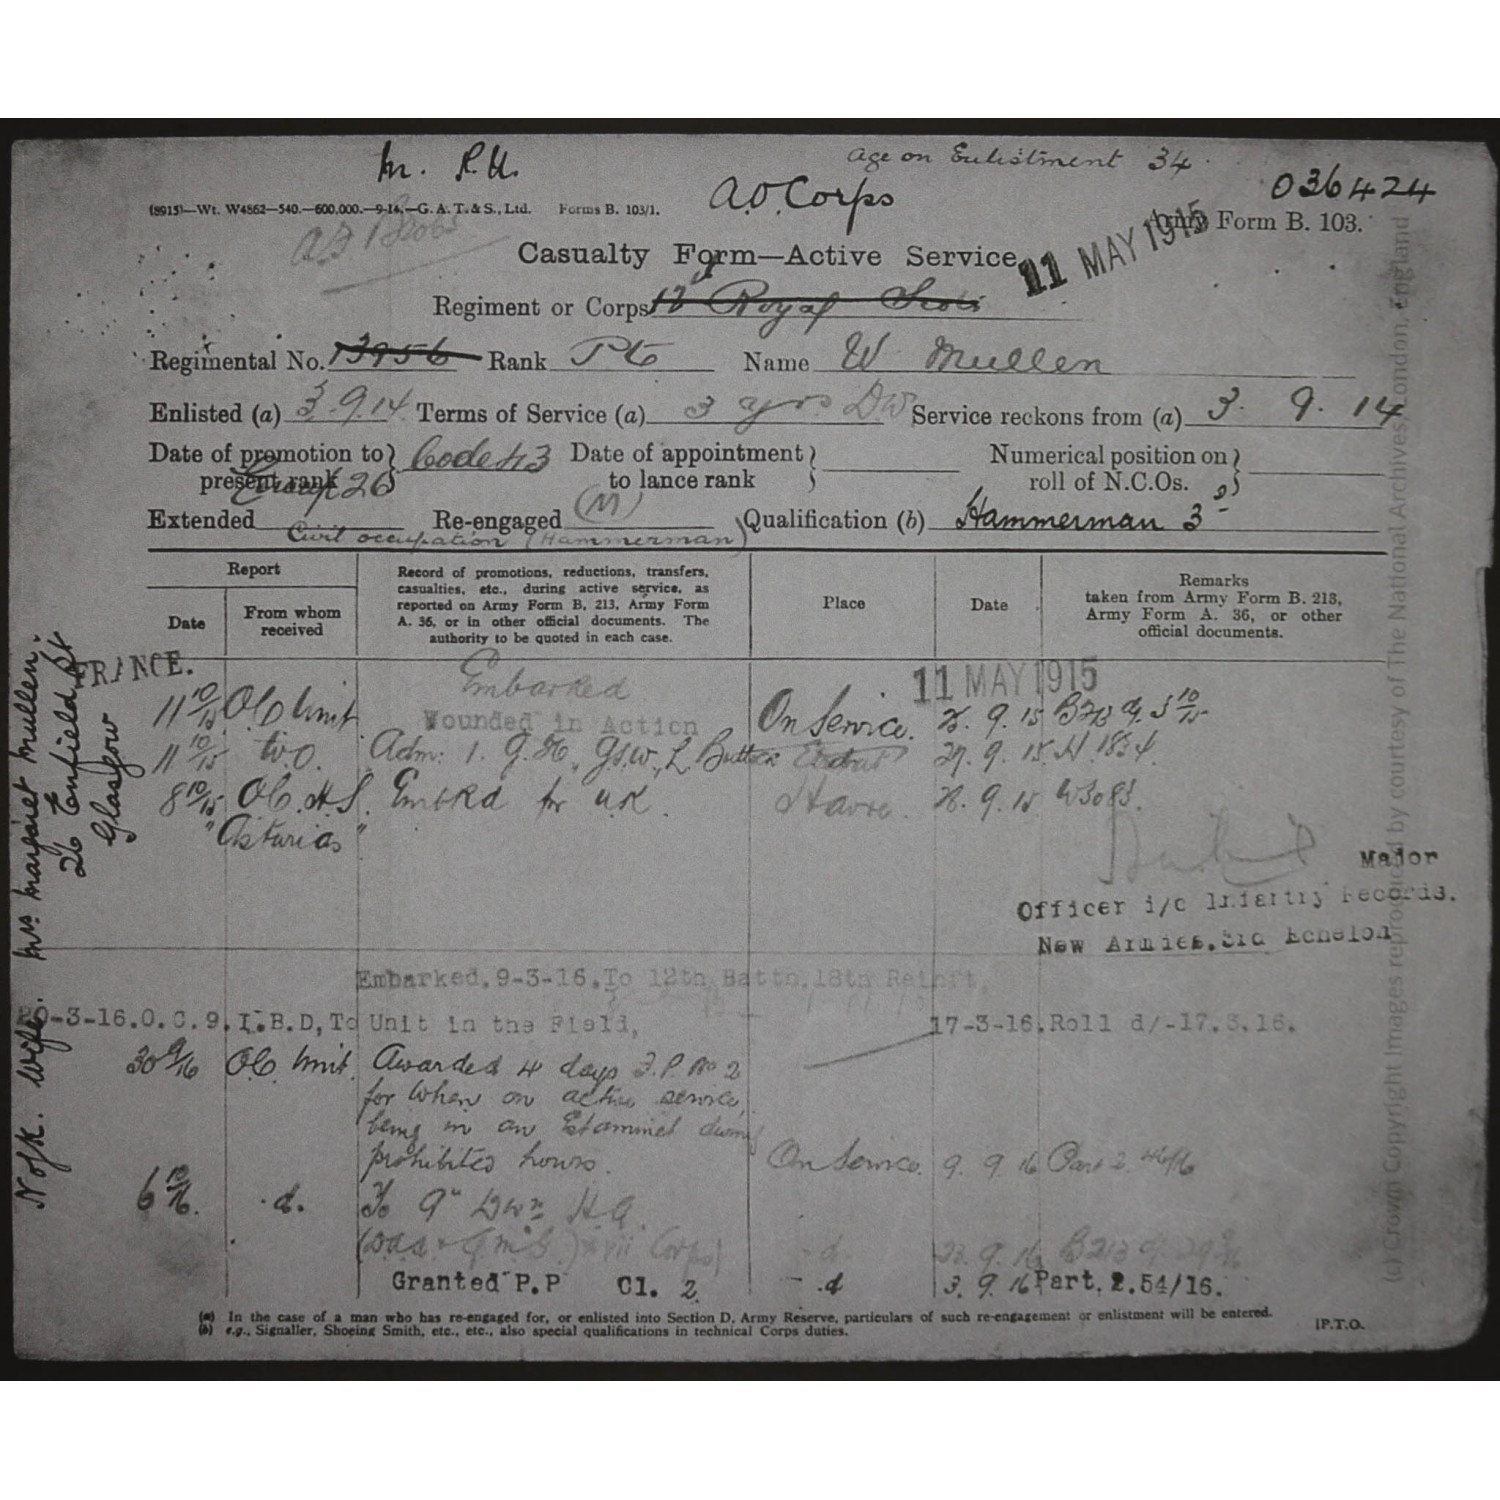 M. R.H.
Age on Enlistment 34
036424
(8915)—Wt. W4862—540.—600,000.—9-14.—G. A. T. & S., Ltd. Forms B. 103/1.
A.O. Corps
Army Form B. 103.
Casualty Form—Active Service.
11 MAY 1915
Regiment or Corps 12 Royal Scots
Regimental No. 13956 Rank Pte Name W Mullen
Enlisted (a) 3.9.14 Terms of Service (a) 3 yrs DW Service reckons from (a) 3. 9. 14
Date of promotion to present rank Code 43 Date of appointment to lance rank Numerical position on roll of N.C.Os.
Group 26
Extended Re-engaged (M) Qualification (b) Hammerman 3
Civil occupation (Hammerman)
Report
Date
From whom received
Record of promotions, reductions, transfers,
casualties, etc., during active service, as
reported on Army Form B. 213, Army Form
A. 36, or in other official documents. The
authority to be quoted in each case.
Place
Date
Remarks
taken from Army Form B. 213,
Army Form A. 36, or other
official documents.
FRANCE. Embarked 11 MAY 1915
11 10/15 OC Unit Wounded in Action On Service. 9. 15 B213
11 10/15 W.O. Adm: 1. G.H., G.S.W. L. Buttock 9. 15 H. 1834.
8 10/15 OC H.S. Embkd for U.K. Havre. 9. 15 W3083.
"Asturias"
Major
Officer i/c Infantry Records.
New Armies. 3rd Echelon
Embarked. 9-3-16. To 12th Battn. 18th Reinft.
-3-16. O. C. 9. I. B. D, To Unit in the Field, 17-3-16. Roll d/-17.3.16.
30 9/16 OC Unit. Awarded 4 days F.P. No 2
for When on active service,
being in an Estaminet during
prohibited hours. On Service. 9. 9. 16 Part 2
6 10/16. d. To 9th Dwn H.Q.
Corps) d 9. 16 B213
Granted P.P Cl. 2 d 3. 9. 16 Part. 2.54/16.
(a) In the case of a man who has re-engaged for, or enlisted into Section D, Army Reserve, particulars of such re-engagement or enlistment will be entered.
(b) e.g., Signaller, Shoeing Smith, etc., etc., also special qualifications in technical Corps duties.
[P.T.O.
N of K. Wife. Mrs Margaret Mullen.
26 Enfield St
Glasgow
(c) Crown Copyright Images reproduced by courtesy of The National Archives, London, England